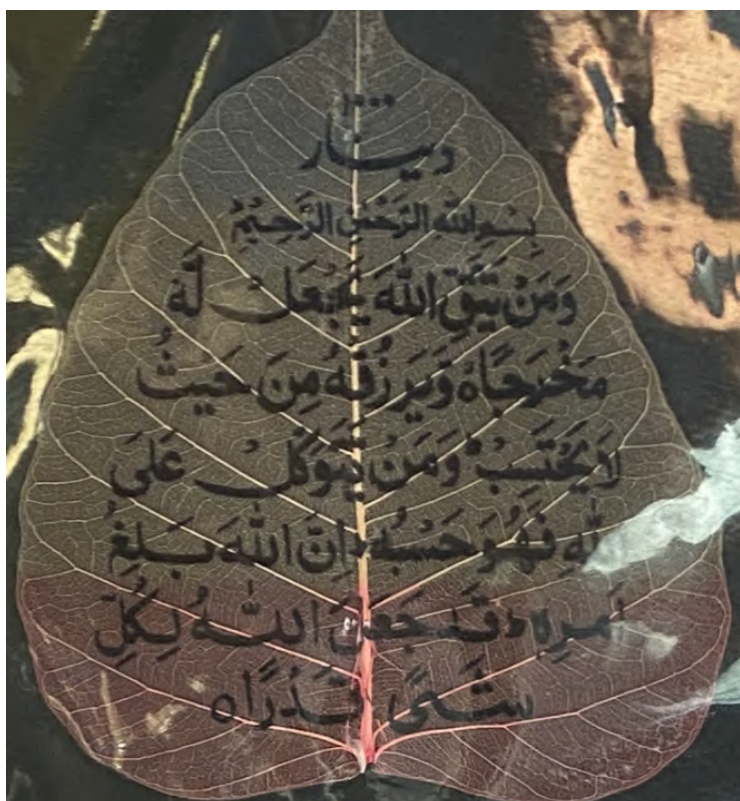 دينار
بِسْمِ اللهِ الرَّحْمٰنِ الرَّحِيْمِ
وَمَنْ يَتَّقِ اللهَ يَجْعَلْ لَّهٗ
مَخْرَجًاه وَّيَرْزُقْهُ مِنْ حَيْثُ
لَا يَحْتَسِبُ وَمَنْ يَّتَوَكَّلْ عَلَى
اللهِ فَهُوَ حَسْبُهٗ اِنَّ اللهَ بَالِغُ
اَمْرِهٖ قَدْ جَعَلَ اللهُ لِكُلِّ
شَىْءٍ قَدْرًاه